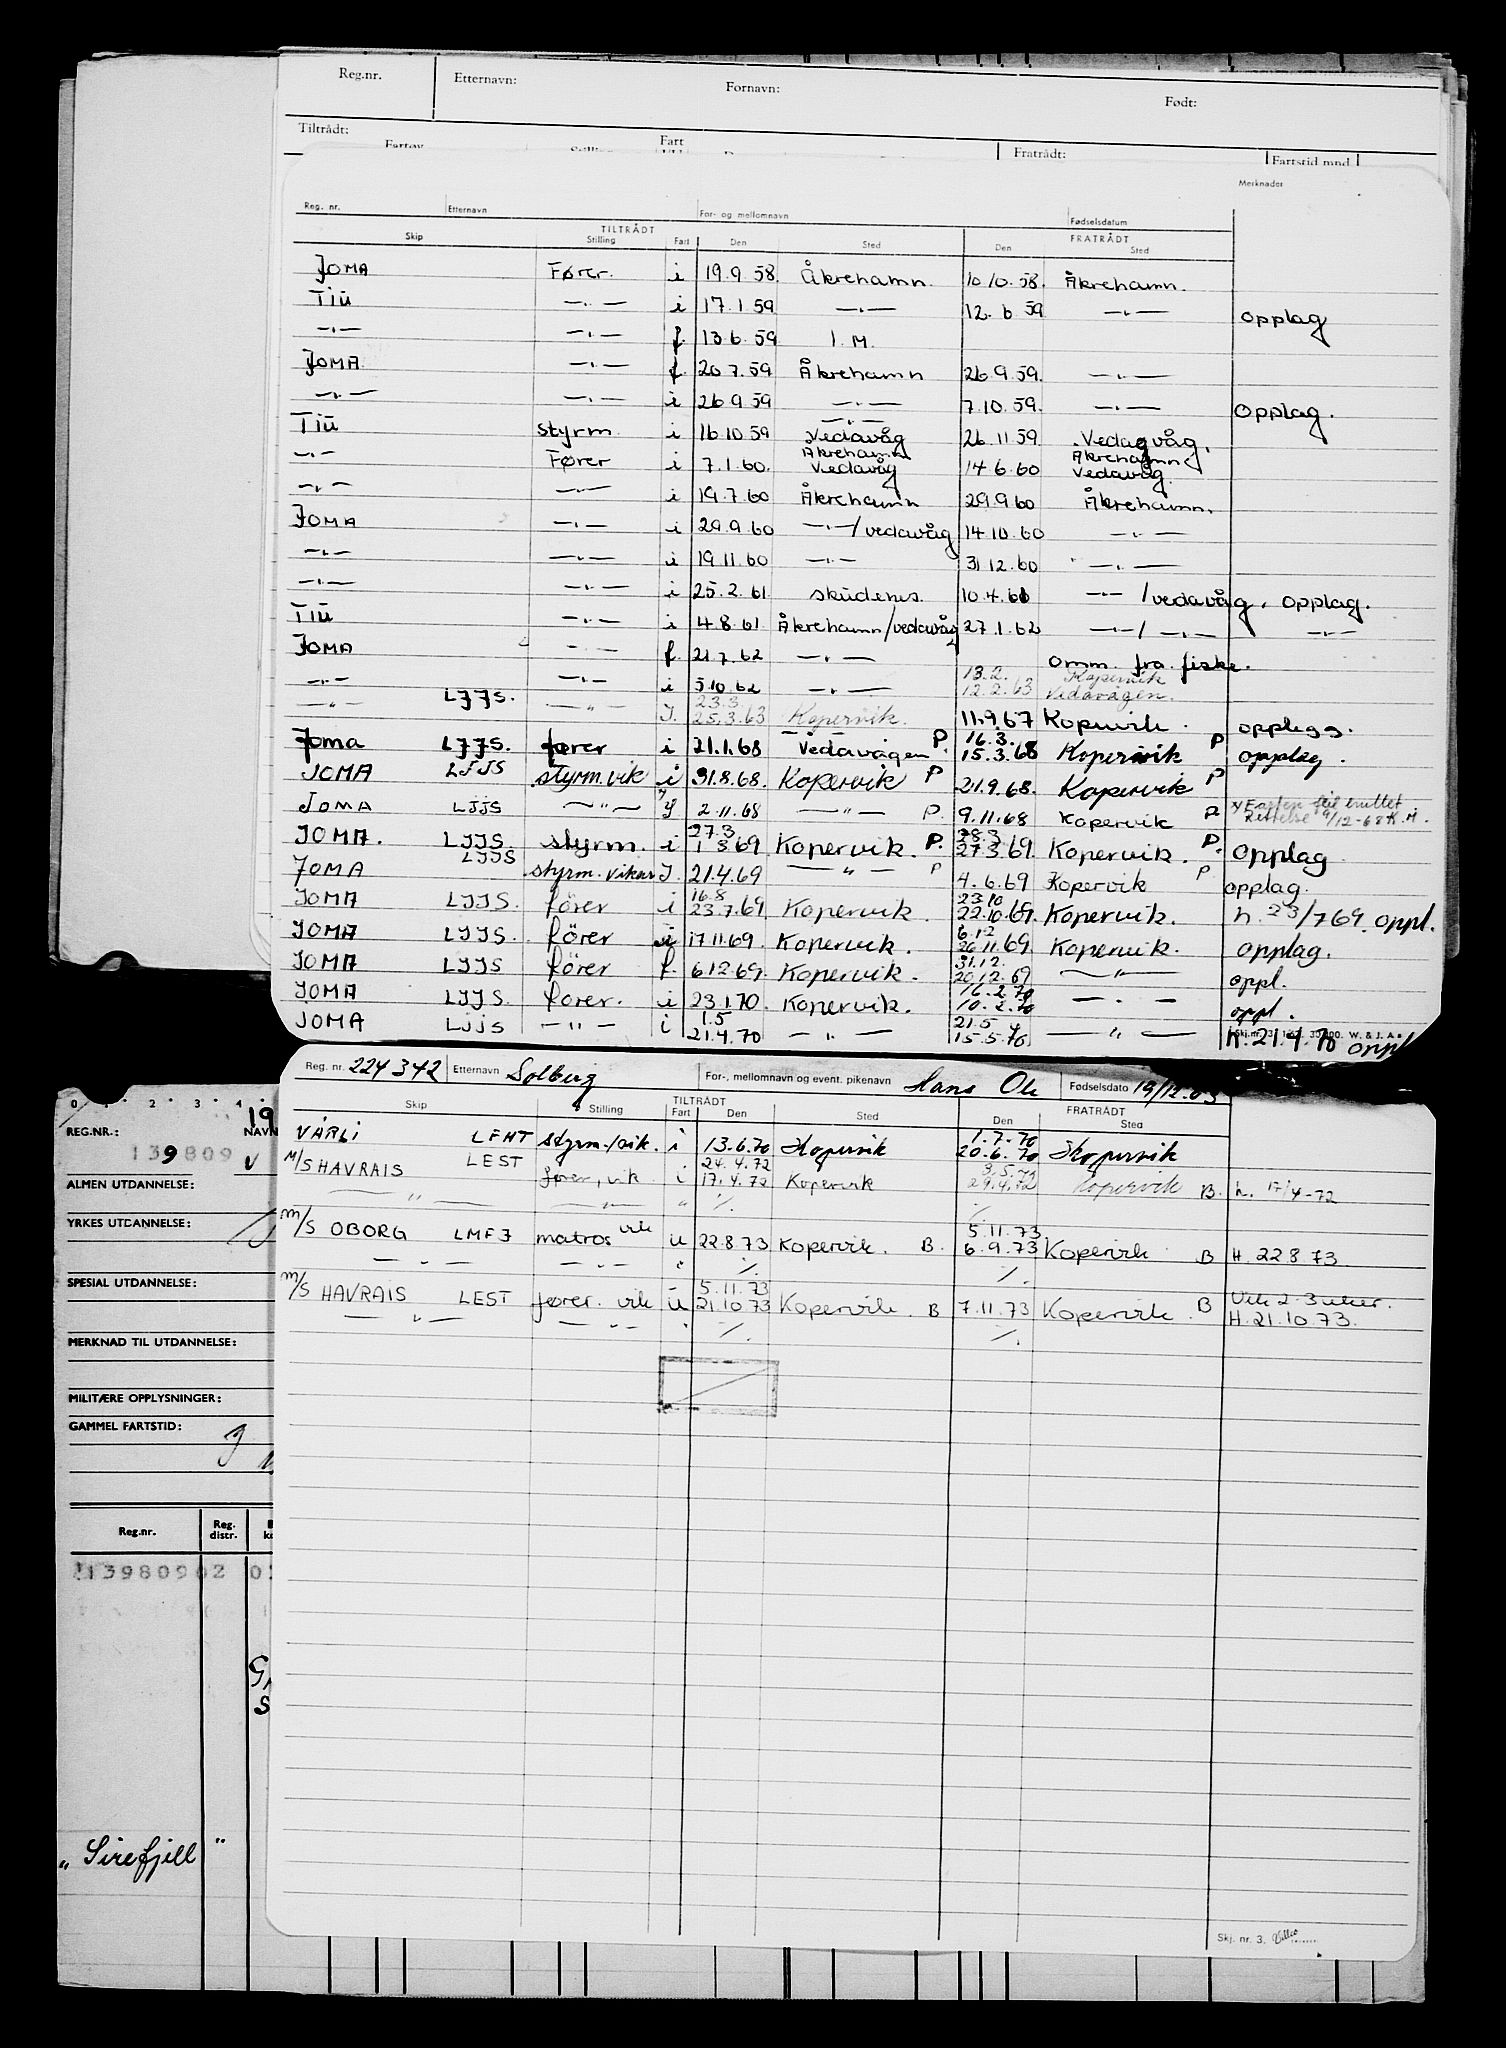 Reg.nr. Etternavn: Fornavn: Født:
Tiltrådt: Fart Fratrådt: Fartstid mnd.
Merknader
Reg. nr. Etternavn For- og mellomnavn Fødselsdatum
TILTRÅDT FRATRÅDT
Skip Stilling Fart Den Sted Den Sted
JOMA Fører. i 19.9.58. Åkrehamn. 10.10.58. Åkrehamn.
TIU —"— i 17.1.59 —"— 12.6.59 —"— opplag
—"— —"— f. 13.6.59 I.M.
JOMA —"— f. 20.7.59 Åkrehamn 26.9.59. —"—
—"— —"— i 26.9.59 —"— 7.10.59. —"— opplag.
TIU styrm i 16.10.59 Vedavåg 26.11.59. Vedavåg.
—"— Fører i 7.1.60. Åkrehamn Vedavåg 14.6.60 Åkrehamn Vedavåg.
—"— —"— i 19.7.60 Åkrehamn 29.9.60 Åkrehamn.
JOMA —"— i 29.9.60 —"—/vedavåg 14.10.60 —"—
—"— —"— i 19.11.60 —"— 31.12.60 —"—
—"— —"— i 25.2.61. skudenes. 10.4.61 —"— /vedavåg. opplag.
TIU —"— i 4.8.61 Åkrehamn/vedavåg 27.1.62 —"—/—"— —"—
JOMA —"— f. 21.7.62 —"— omm. fra fiske.
—"— —"— i 5.10.62 —"— 13.2. 12.2.63 Kopervik Vedavågen.
—"— LJJS. —"— I. 23.3. 25.3.63 Kopervik. 11.9.67 Kopervik. opplegg.
Joma LJJS. fører i 21.1.68 Vedavågen P. 16.3. 15.3.68 Kopervik P opplag.
JOMA LJJS styrm.vik i 31.8.68. Kopervik P 21.9.68. Kopervik P
JOMA LJJS —"— 2.11.68 —"— P. 9.11.68 Kopervik P
JOMA. LJJS. styrm. i 27.3 1 3 69 Kopervik. P. 28.3 27.3.69. Kopervik. P. opplag
JOMA LJJS styrm. vikar I. 21.4.69 —"— P 4.6.69 Kopervik P opplag.
JOMA LJJS. förer i 16.8 23.7.69 Kopervik. 23.10 22.10.69. Kopervik. h. 23/7 69. oppl.
JOMA LJJS. förer i 17.11.69. Kopervik. 6.12 26.11.69. Kopervik. opplag.
JOMA LJJS förer f. 6.12.69. Kopervik. 31.12. 20.12.69 —"— oppl.
JOMA LJJS. förer. i 23.1.70. Kopervik. 16.2.70 10.2.70 —"— oppl.
JOMA LJJS —"— i 1.5 21.4.70 —"— 21.5 15.5.70 —"— H. 21.4.70 oppl
Reg. nr. 224342 Etternavn Solberg For-, mellomnavn og event. pikenavn Hans Ole Fødselsdato 19/12.03
TILTRÅDT FRATRÅDT
Skip Stilling Fart Den Sted Den Sted
VÅRLI LEHT styrm./vik. i 13.6.70 Kopervik 1.7.70 20.6.70 Kopervik
M/S HAVRAIS LEST fører, vik i 24.4.72 17.4.72 Kopervik 3.5.72 29.4.72 Kopervik B. h. 17/4-72
—"— —"— " ./. ./.
M/S OBORG LMFJ matros vik u 22.8.73 Kopervik. B. 5.11.73 6.9.73 Kopervik B H. 22.8.73.
—"— —"— " ./. ./.
M/S HAVRAIS LEST fører. vik u 5.11.73 21.10.73 Kopervik. B 7.11.73 Kopervik. B Vik 2-3 uker. H. 21.10.73.
—"— —"— " ./. ./.
Skj. nr. 3.
0 1 2 3 4
REG.NR.: NAVN
139809
ALMEN UTDANNELSE:
YRKES UTDANNELSE:
SPESIAL UTDANNELSE:
MERKNAD TIL UTDANNELSE:
MILITÆRE OPPLYSNINGER:
GAMMEL FARTSTID:
Reg.nr. Reg. distr.
13980902
„ Sirefjell "